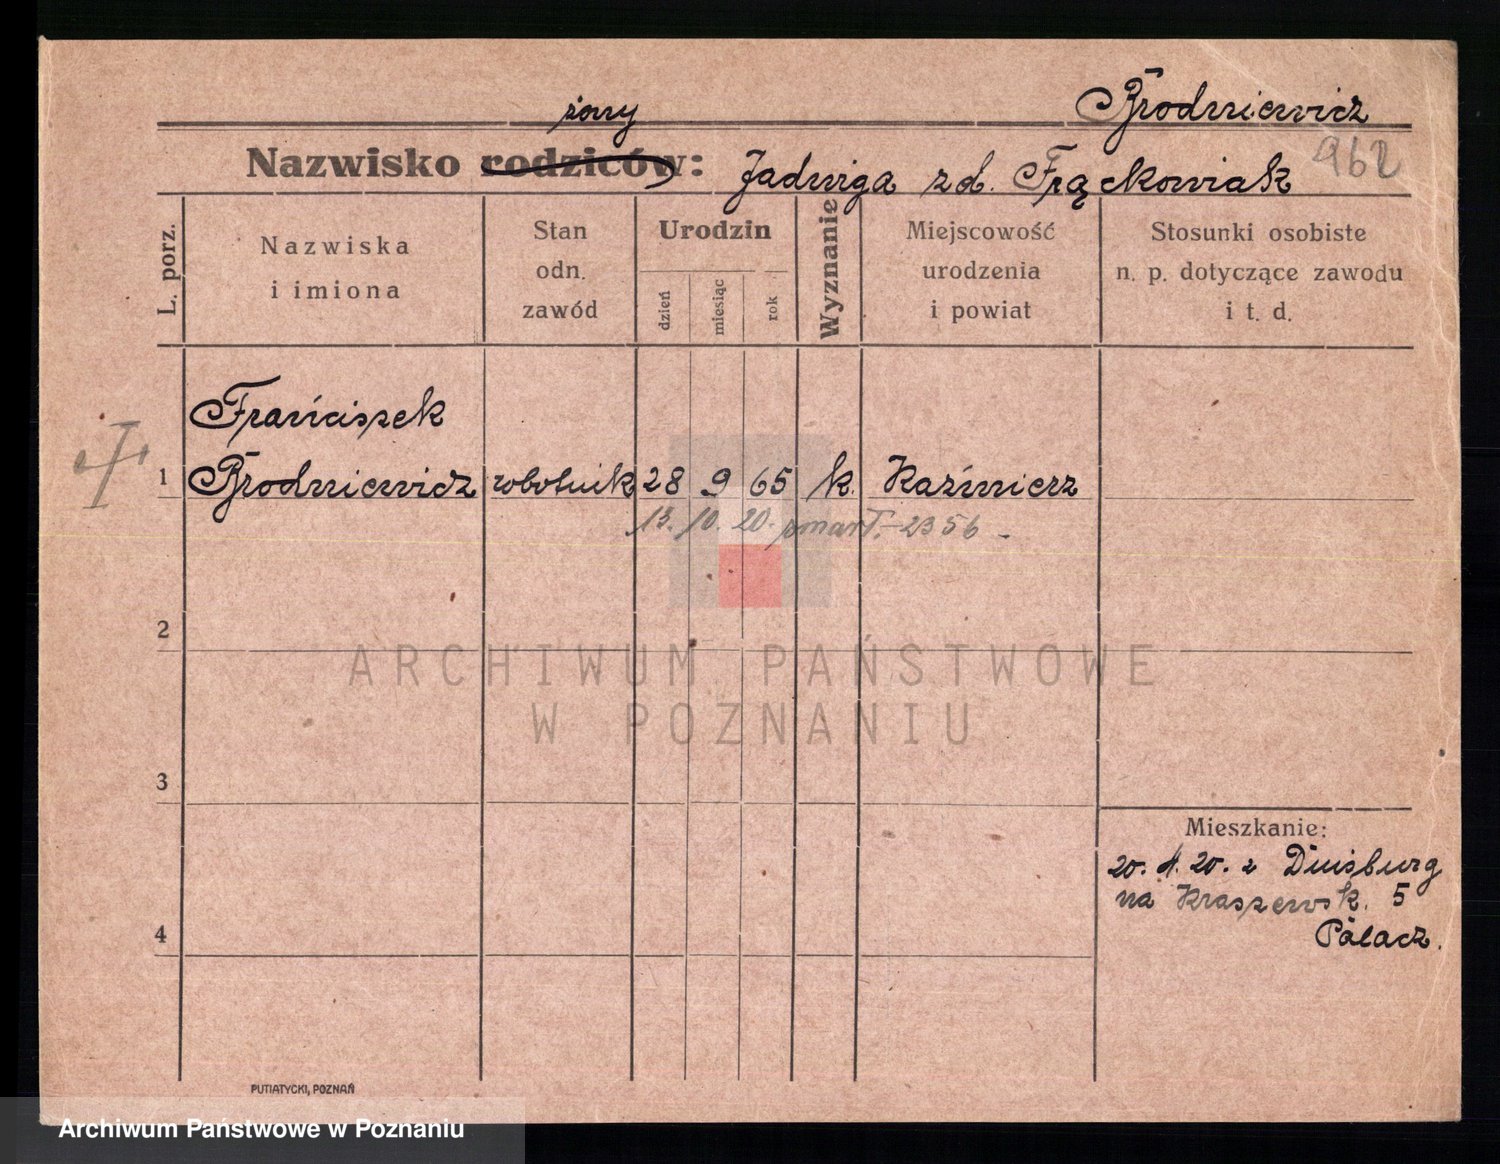 Brodniewicz
żony
Nazwisko rodziców: Jadwiga zd. Frąckowiak
962
L. porz.
Nazwiska
i imiona
Stan
odn.
zawód
Urodzin
dzień
miesiąc
rok
Wyznanie
Miejscowość
urodzenia
i powiat
Stosunki osobiste
n. p. dotyczące zawodu
i t. d.
Franciszek
1 Brodniewicz robotnik 28 9 65 k. Kaźmierz
13. 10. 20. zmarł. - 2356 -
2
ARCHIWUM PAŃSTWOWE
W POZNANIU
3
Mieszkanie:
20. 4. 20. z Duisburg
na Kraszewsk. 5
Palacz.
4
PUTIATYCKI, POZNAŃ
Archiwum Państwowe w Poznaniu